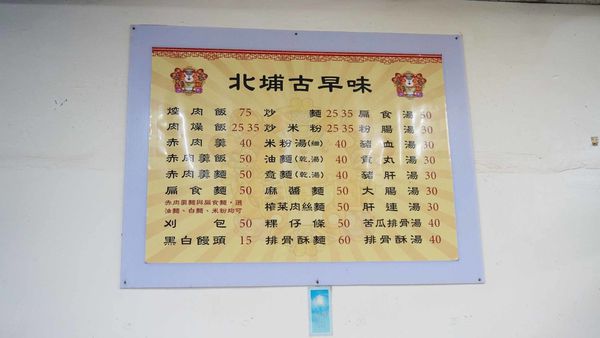 北埔古早味
焢肉飯 75 炒麵 25 35 扁食湯 50
肉燥飯 25 35 炒米粉 25 35 粉腸湯 30
赤肉羹 40 米粉湯(細) 40 豬血湯 30
赤肉羹飯 50 油麵(乾.湯) 40 貢丸湯 30
赤肉羹麵 50 意麵(乾.湯) 40 豬肝湯 30
扁食麵 50 麻醬麵 50 大腸湯 30
赤肉羹麵與扁食麵，選
油麵、白麵、米粉均可
榨菜肉絲麵 50 肝連湯 30
刈包 50 粿仔條 50 苦瓜排骨湯 40
黑白饅頭 15 排骨酥麵 60 排骨酥湯 40